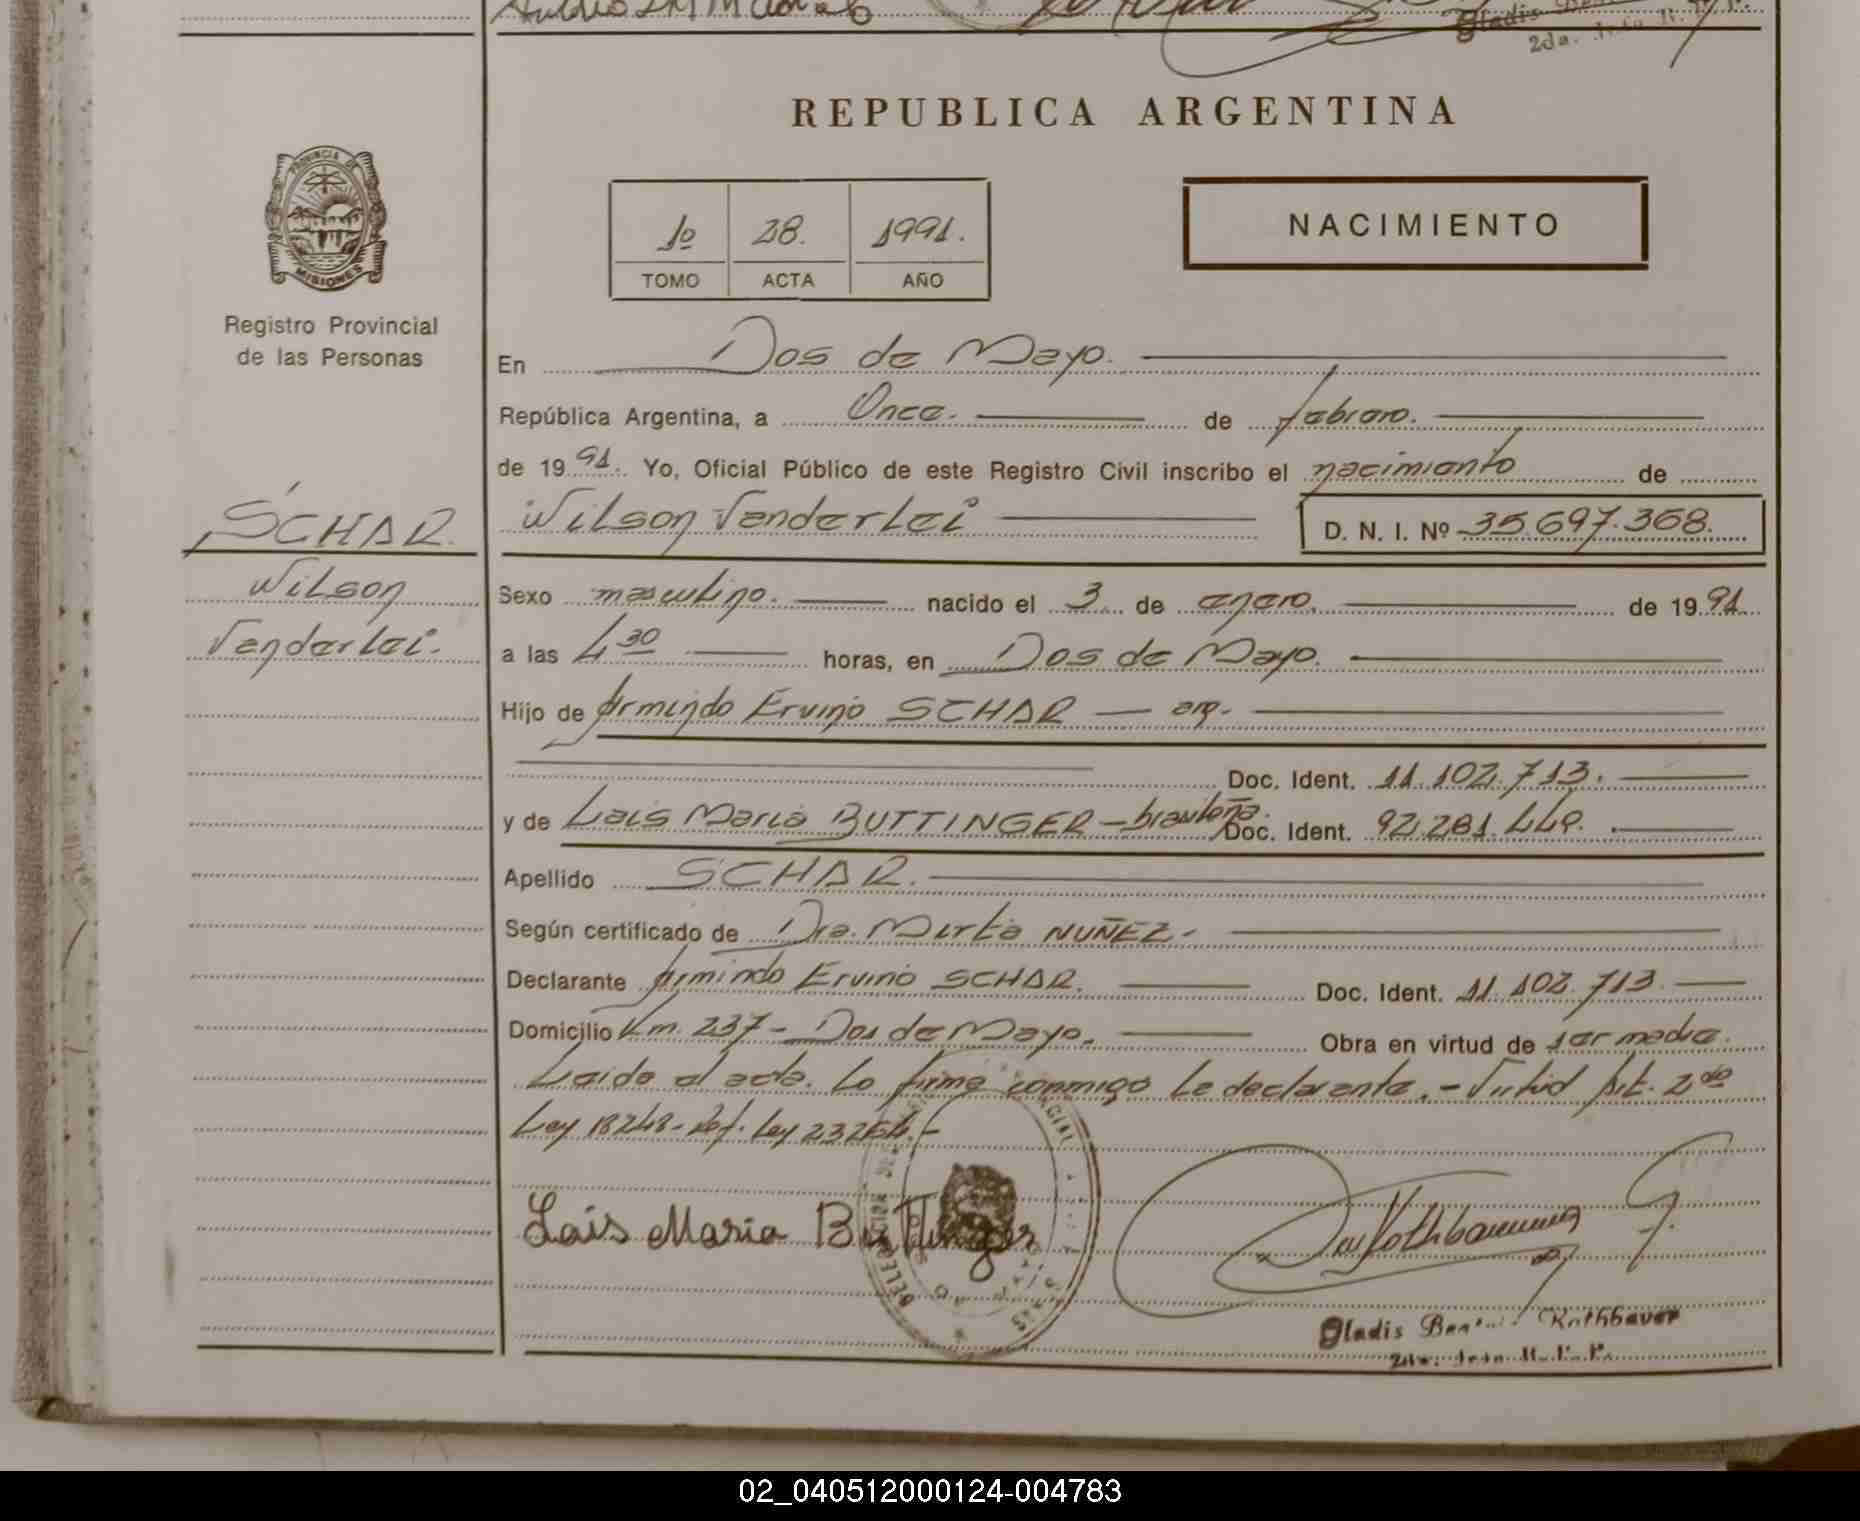 REPUBLICA ARGENTINA
PROVINCIA DE
MISIONES
1º 28. 1991.
TOMO ACTA AÑO
NACIMIENTO
Registro Provincial
de las Personas
En Dos de Mayo.
República Argentina, a Once. de febrero.
de 1991. Yo, Oficial Público de este Registro Civil inscribo el nacimiento de
SCHAR.
Wilson
Vanderlei.
Wilson Vanderlei D. N. I. Nº 35.697.368.
Sexo masculino. nacido el 3 de enero. de 1991
a las 4 30 horas, en Dos de Mayo.
Hijo de Armindo Ervino SCHAR — arg.
Doc. Ident. 11.102.713.
y de Lais Maria BUTTINGER - brasileña. Doc. Ident. 92.281.449.
Apellido SCHAR.
Según certificado de Dra. Mirta NUÑEZ-
Declarante Armindo Ervino SCHAR. Doc. Ident. 11.102.713.
Domicilio Km. 237- Dos de Mayo. Obra en virtud de ser madre.
Leida el acta. Lo firma conmigo la declarante.- Art. 2do
Ley 18248- Ley 23264.-
Lais Maria Buttinger
Gladis Rothbauer
02_040512000124-004783